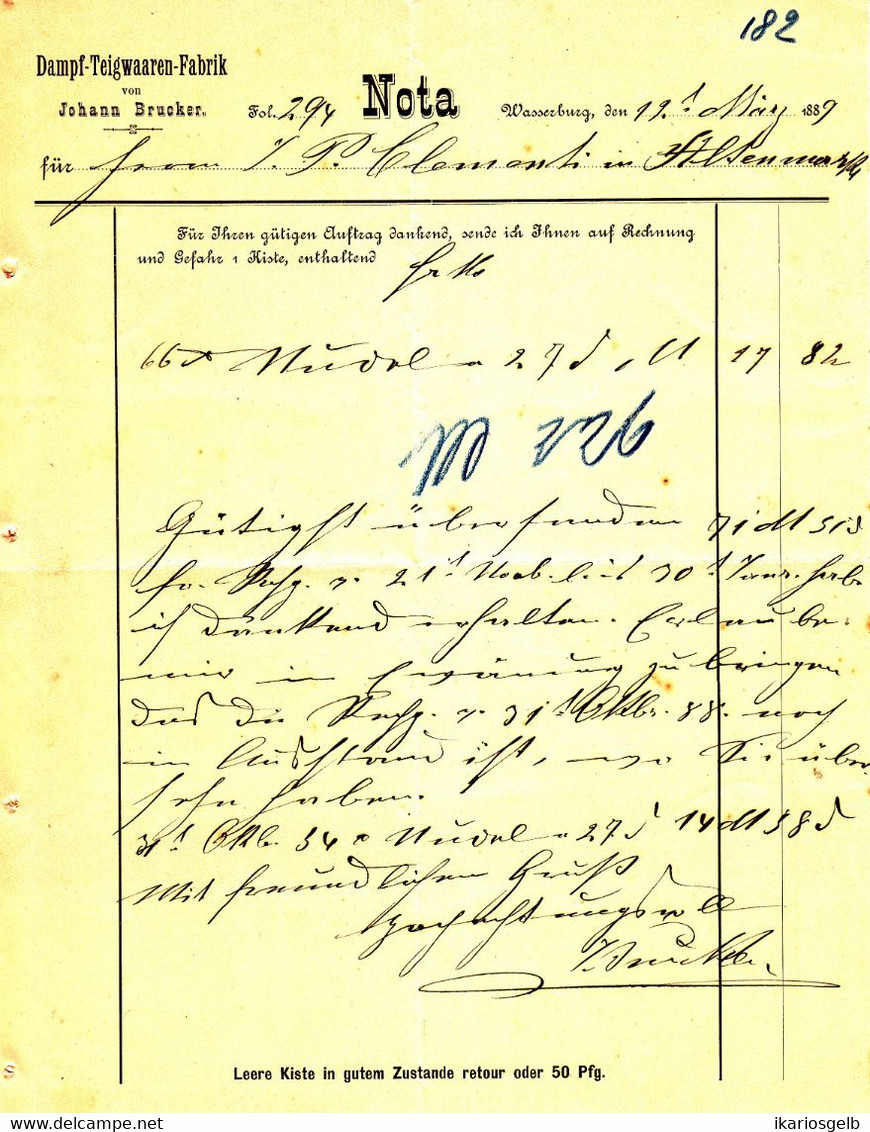 182
Dampf-Teigwaaren-Fabrik
von
Johann Brucker.
Fol. 294 Nota Wasserburg, den 12.t März 1889
für Herrn J. P. Clementi in Altenmarkt
Für Ihren gütigen Auftrag dankend, sende ich Ihnen auf Rechnung
und Gefahr 1 Kiste, enthaltend
frko
66 ℔ Nudel a 27 ₰ M 17 82
226
Gütigst übersandten 71 M 51 ₰
fr. Rchg. v. 21t Novb. bis 30t Janr. habe
ich dankend erhalten. Erlaube
mir in Erwänung zu bringen
das die Rechg. v. 31t Oktbr. 88. noch
in Ausstand ist, wo Sie über
sehn haben.
31t Oktb. 54 ℔ Nudel a 27 ₰ 14 M 58 ₰
Mit freundlichen Gruß
hochachtungsvoll
J. Brucker
Leere Kiste in gutem Zustande retour oder 50 Pfg.
ikariosgelb